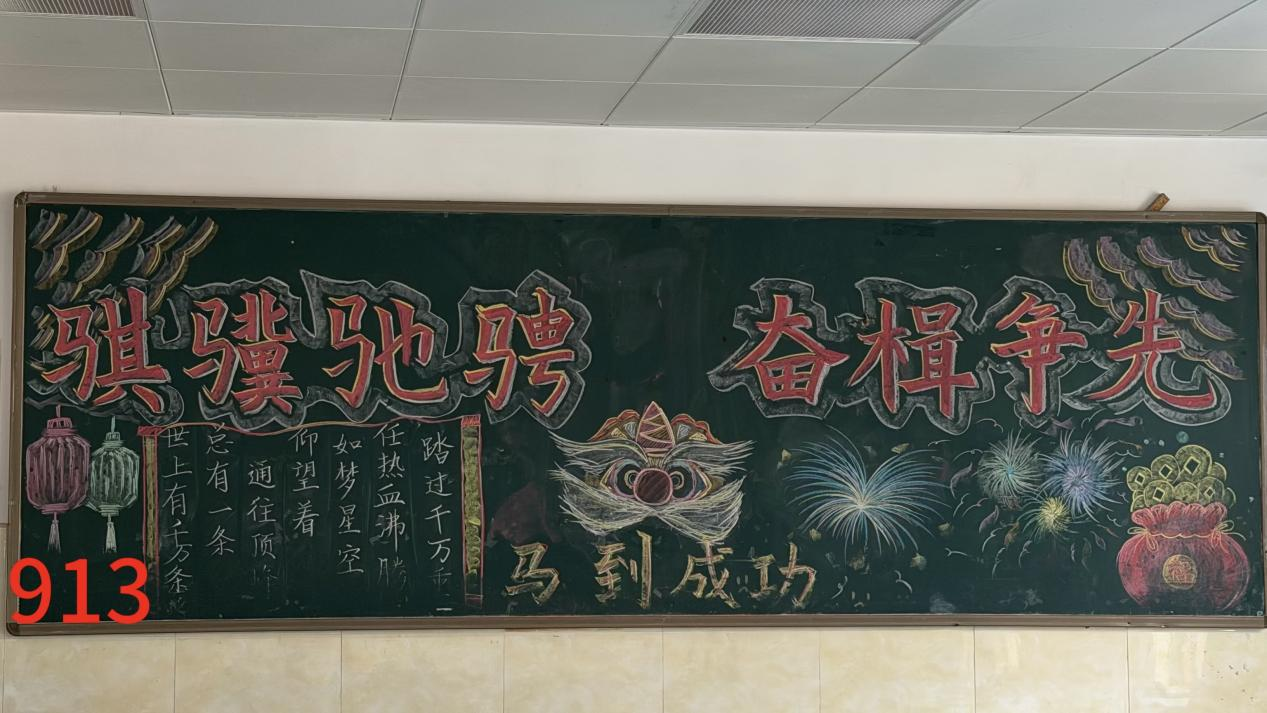 骐骥驰骋 奋楫争先
世上有千万条
总有一条
通往顶峰
仰望着
如梦星空
任热血沸腾
踏过千万重
马到成功
913